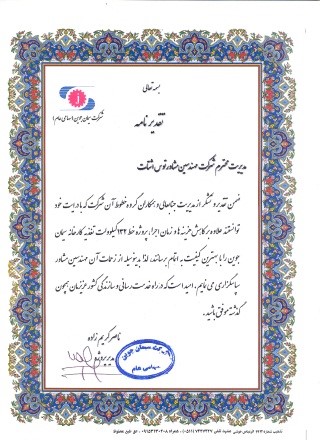 بسمه تعالی
شرکت سیمان جوین (سهامی عام)
تقدیر نامه
مدیریت محترم شرکت مهندسین مشاور توس اشتات
ضمن تقدیر و تشکر از مدیریت جنابعالی و همکاران گروه خطوط آن شرکت که با درایت خود
توانستند علاوه بر کاهش هزینه ها و زمان اجرا، پروژه خط ۱۳۲ کیلوولت تغذیه کارخانه سیمان
جوین را با بهترین کیفیت به اتمام برسانند، لذا بدینوسیله از زحمات آن مهندسین مشاور
سپاسگزاری می نمایم. امید است که در راه خدمت رسانی و سازندگی کشور عزیزمان همچون
گذشته موفق باشید.
ناصر کریم زاده
مدیر پروژه
شرکت سیمان جوین
سهامی عام